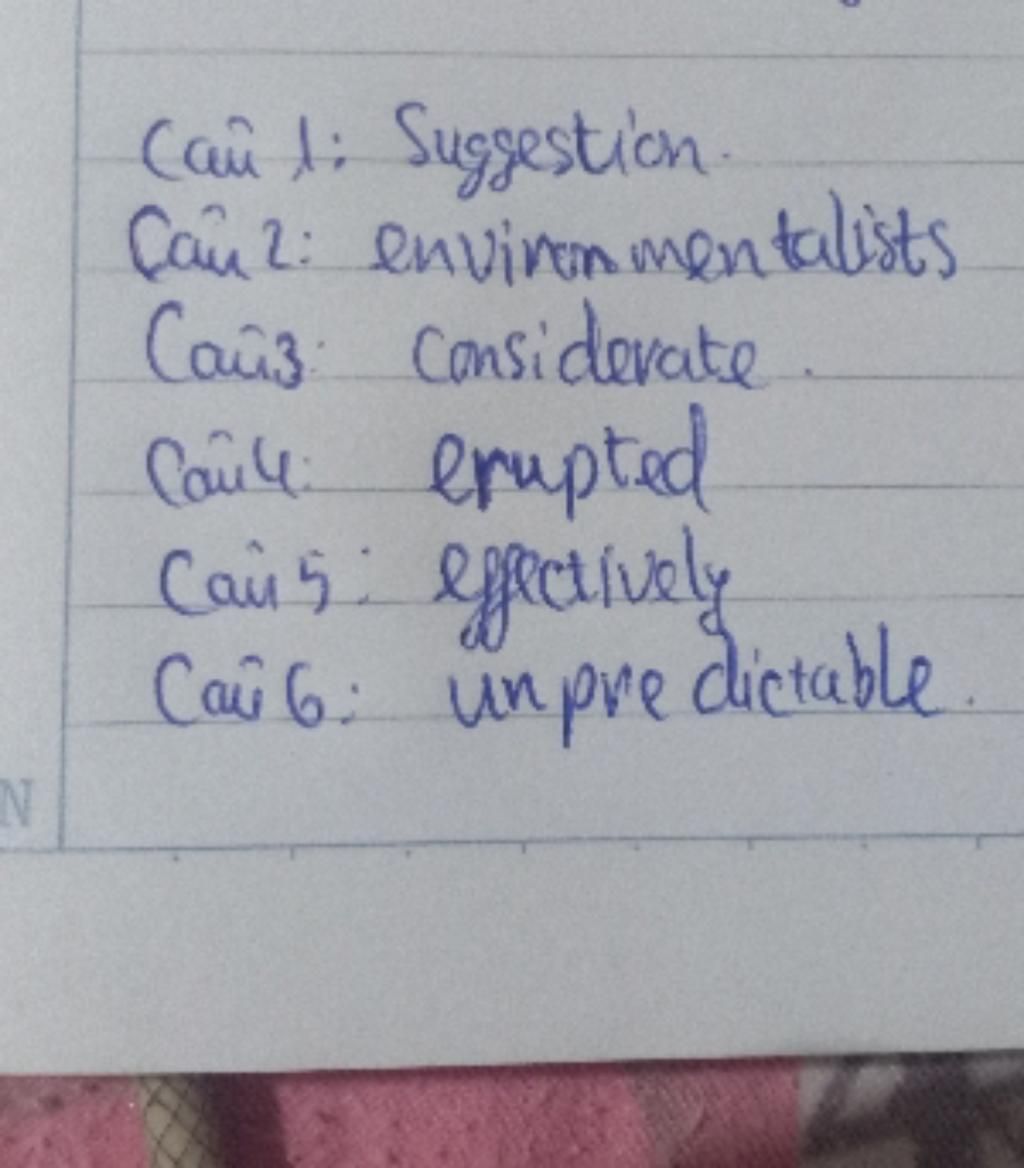 Câu 1: Suggestion.
Câu 2: environmentalists
Câu 3: Considerate.
Câu 4: erupted
Câu 5: effectively
Câu 6: unpredictable.
N